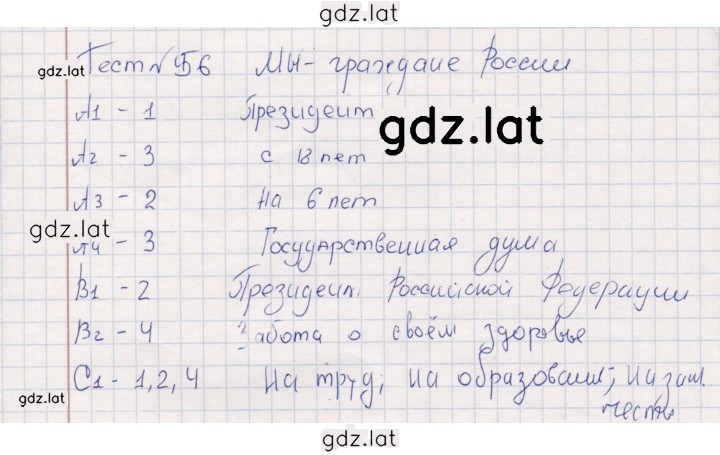 gdz.lat
Тест № 56 Мы - граждане России
gdz.lat
А1 - 1 Президент
gdz.lat
А2 - 3 с 18 лет
А3 - 2 На 6 лет
gdz.lat
А4 - 3 Государственная дума
В1 - 2 Президент Российской Федерации
В2 - 4 Забота о своём здоровье
С1 - 1, 2, 4 На труд; на образование;
gdz.lat
gdz.lat